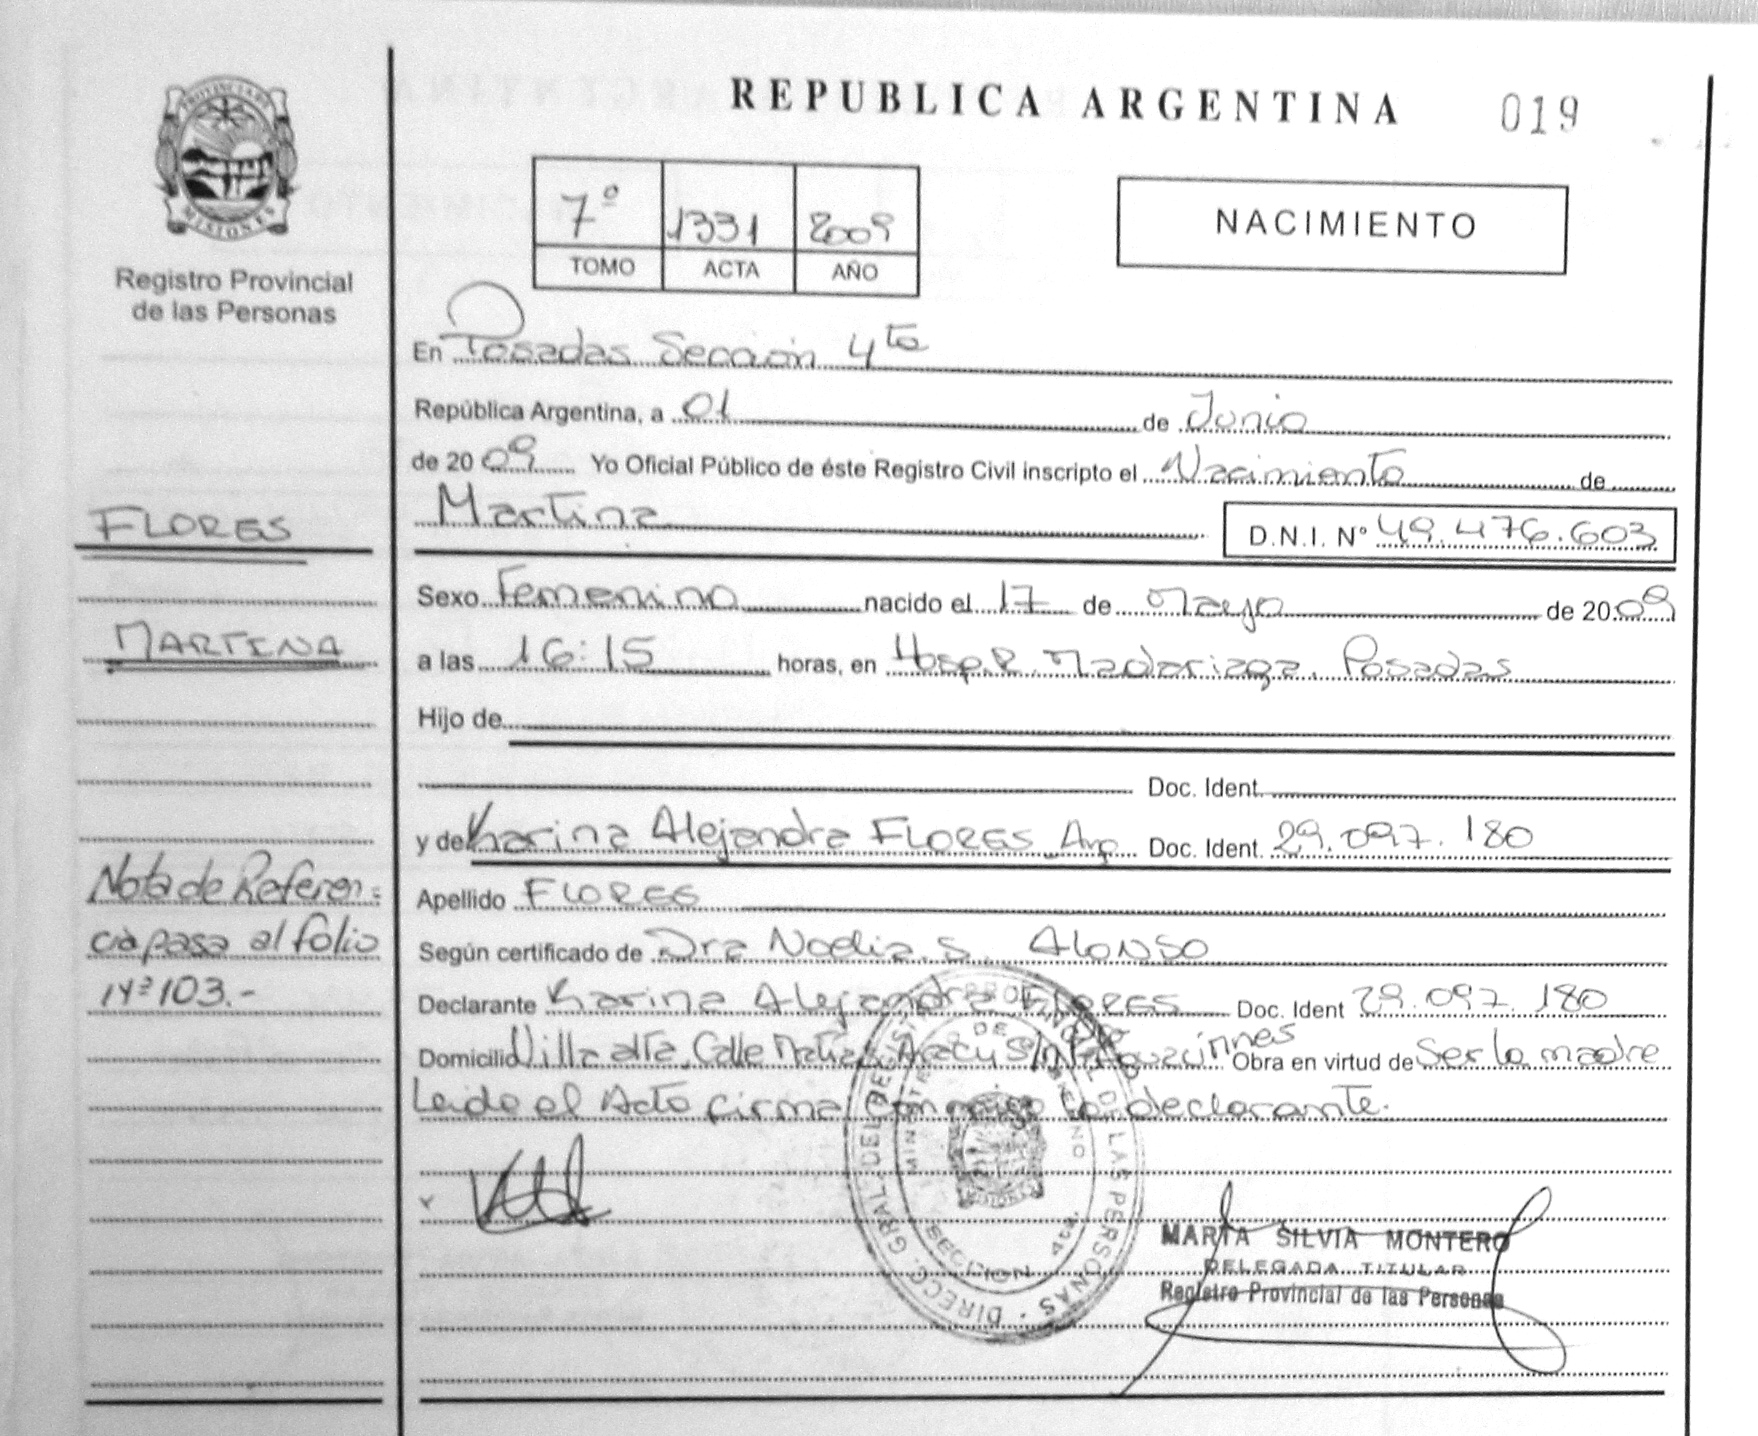 REPUBLICA ARGENTINA 019
PROVINCIA DE
MISIONES
Registro Provincial
de las Personas
7º 1331 2009
TOMO ACTA AÑO
NACIMIENTO
En Posadas Sección 4ta
República Argentina, a 01 de Junio
de 20 09 Yo Oficial Público de éste Registro Civil inscripto el Nacimiento de
Martina D.N.I. Nº 49.476.603
FLORES
Sexo Femenino nacido el 17 de Mayo de 20 09
MARTINA
a las 16:15 horas, en Hosp. R. Madariaga. Posadas
Hijo de
Doc. Ident.
y de Karina Alejandra FLORES Arg. Doc. Ident. 29.097.180
Nota de Referen=
cia pasa al folio
Nº 103.-
Apellido FLORES
Según certificado de Dra Noelia S. ALONSO
Declarante Karina Alejandra FLORES Doc. Ident 29.097.180
Domicilio Villa alta, Calle S/N Obra en virtud de Ser la madre
Leido el Acto firma Conmigo la declarante.
DIRECC. GRAL. DEL REGISTRO PROVINCIAL DE LAS PERSONAS
MINISTERIO DE GOBIERNO
SECCION 4ta.
MARTA SILVIA MONTERO
DELEGADA TITULAR
Registro Provincial de las Personas